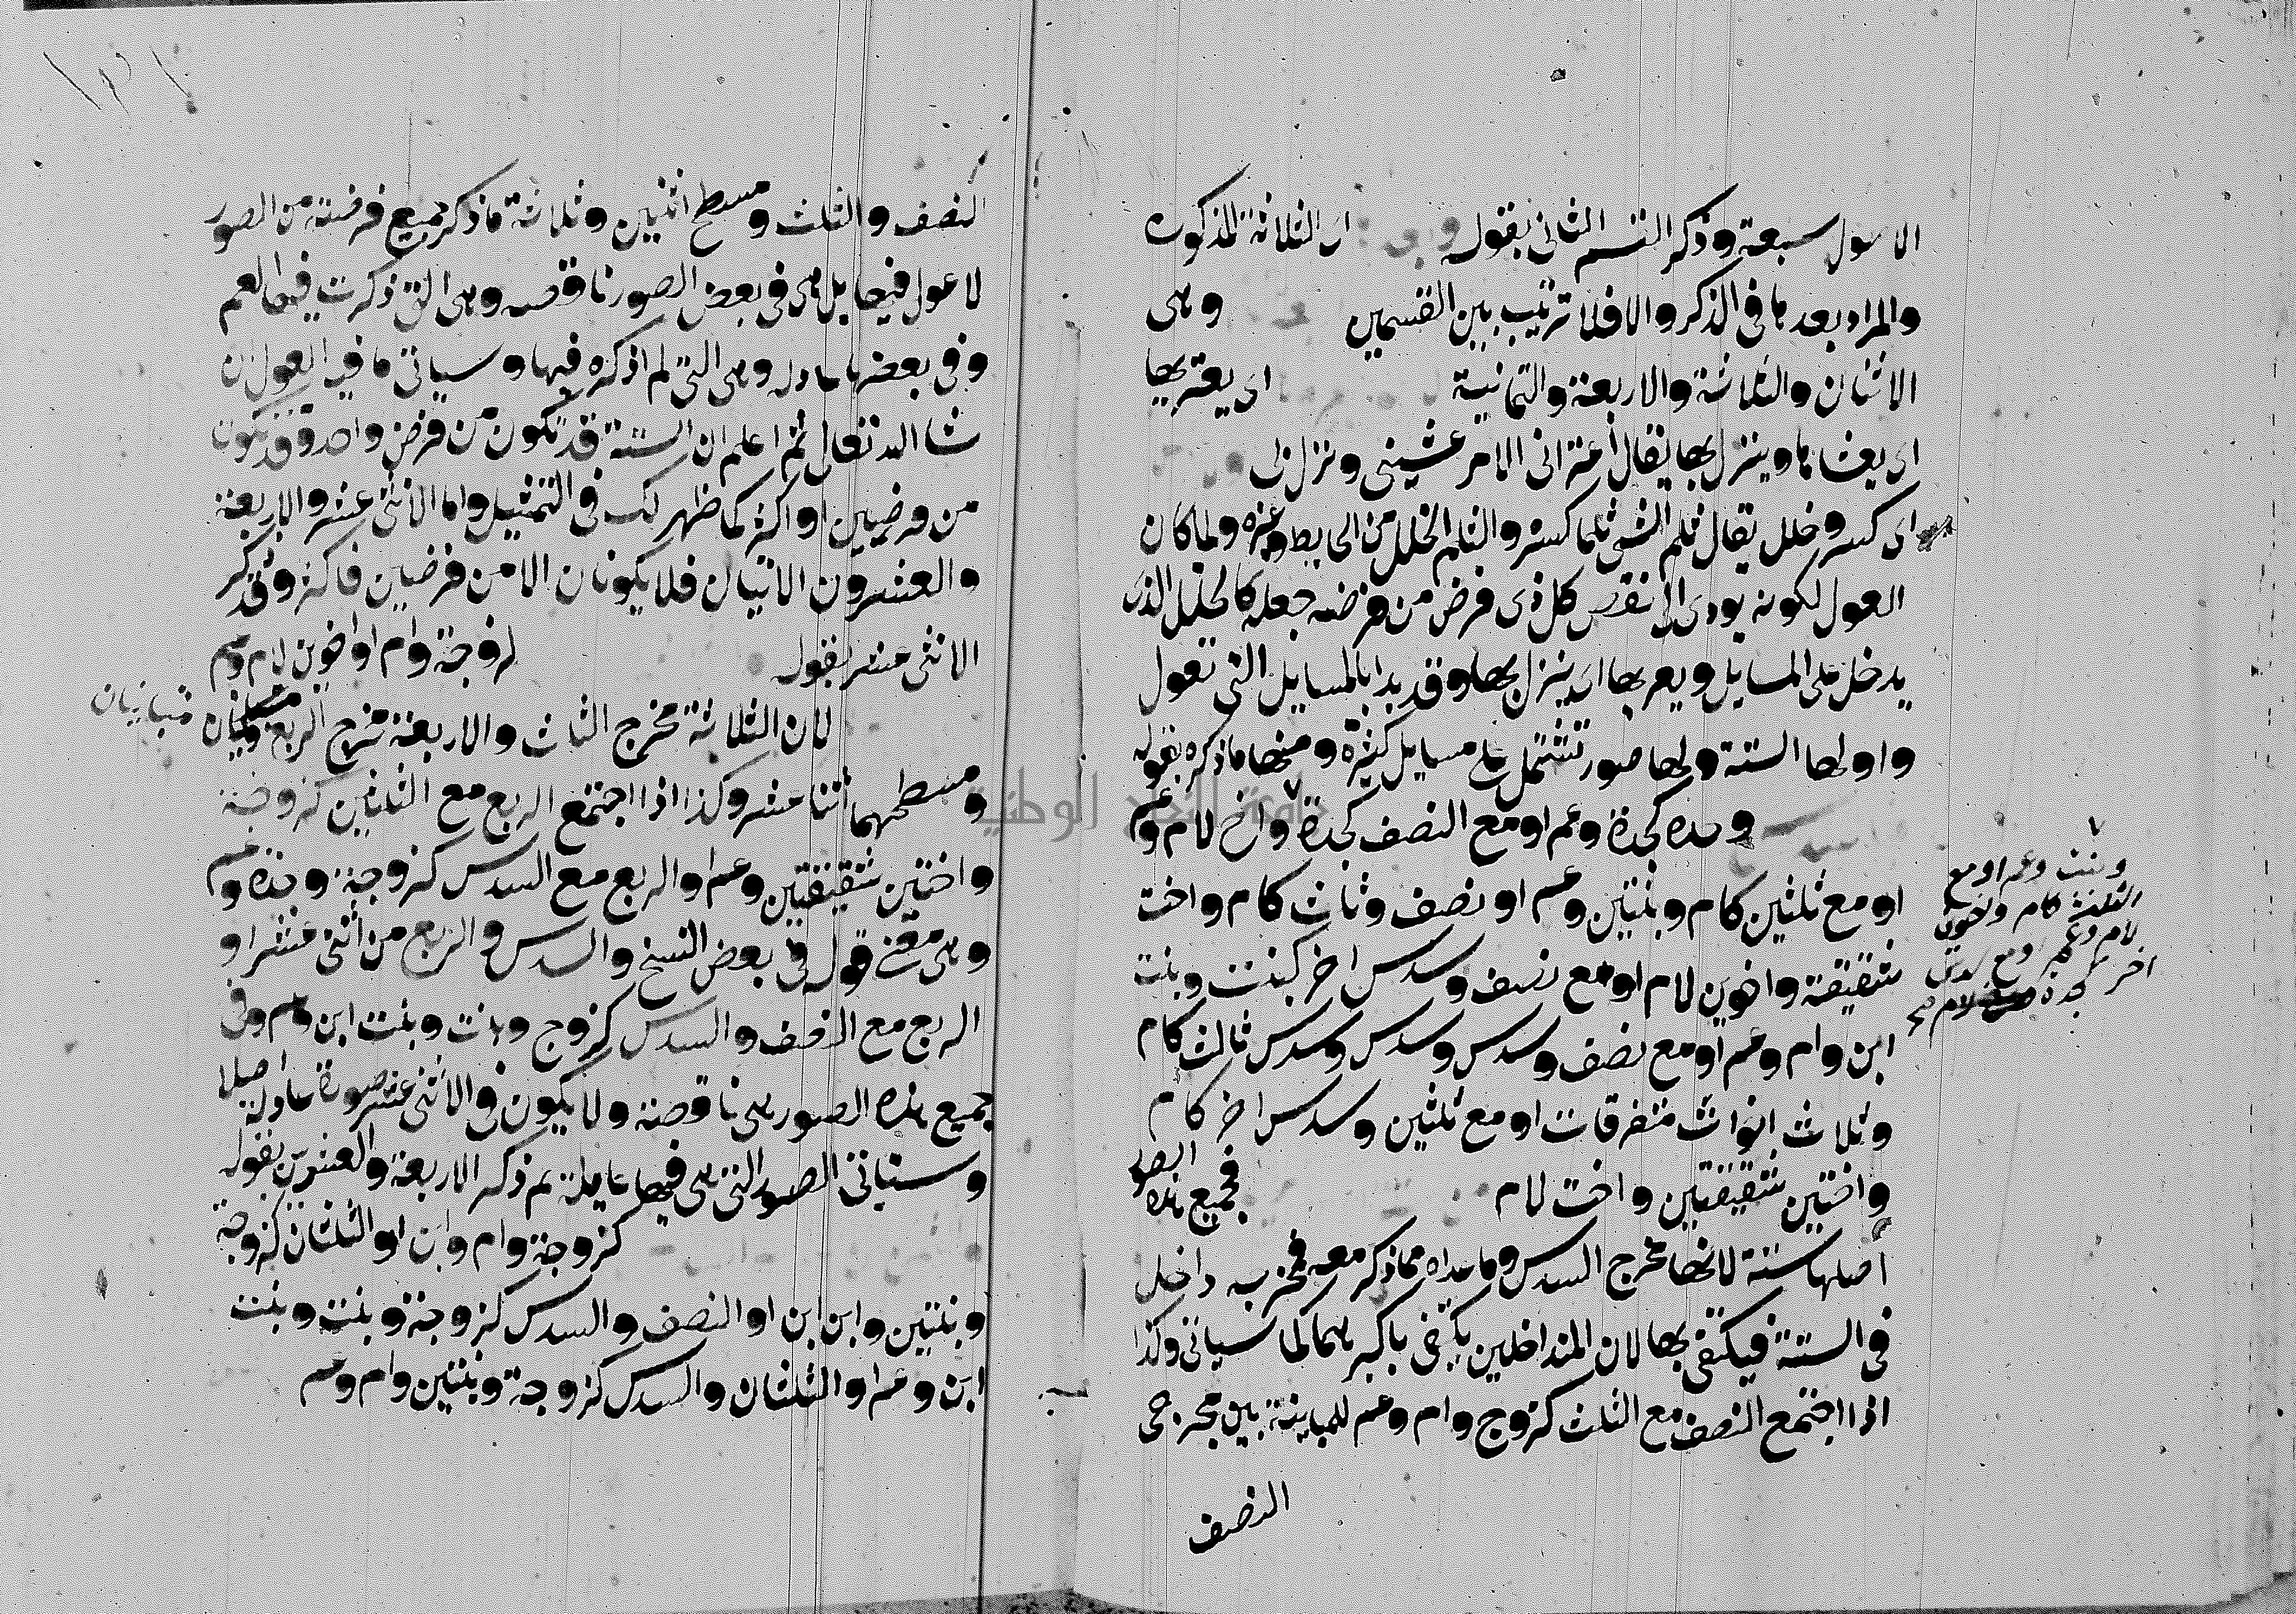 الاصول سبعة وذكر القسم الثاني بقوله اي الثلاثة المذكورة
والمراد بعدها في الذكر والا فلا ترتيب بين القسمين وهي
الاثنان والثلاثة والاربعة والثمانية اي يعتريها
اي يغشاها وينزل بها يقال اعتراني الامر غشيني ونزل بي
اي كسر وخلل يقال ثلم الشي ثلما كسره والثلم الخلل من الحايط وغيره ولما كان
العول لكونه يودي الي نقص كل ذي فرض من فرضه جعله كالخلل الذي
يدخل على المسايل ويعربها اي ينزل بها وقد بدا بالمسايل التي تعول
واولها الستة ولها صور تشتمل على مسايل كثيرة ومنها ما ذكره بقوله
وحده كجدة وعم او مع النصف كجدة واخ لام وعم
او مع ثلثين كام وبنتين وعم او نصف وثلث كام واخت
شقيقة واخوين لام او مع نصف وسدس اخر كبنت وبنت
ابن وام وعم او مع نصف وسدس وسدس وسدس ثالث كام
وثلاث اخوات متفرقات او مع ثلثين وسدس اخر كام
واختين شقيقتين واخت لام فجميع هذه الصور
اصلها ستة لانها مخرج السدس وما عداه مما ذكر معه فمخرجه داخل
في الستة فيكتفى بها لان المتداخلين يكتفى باكبرهما كما سياتي وكذا
اذا اجتمع النصف مع الثلث كزوج وام وعم للمباينة بين مخرجي
النصف
وبنت وعم او مع
الثلث كام واخوين
لام وعم او مع سدس
اخر كجدة لام صح
النصف والثلث ومسطح اثنين وثلاثة ما ذكر جميع فرضته من الصور
لا عول فيها بل هي في بعض الصور ناقصه وهي التي ذكرت فيها العم
وفي بعضها عادله وهي التي لم اذكره فيها وسياتي ما فيه العول ان
شا الله تعالى ثم اعلم ان الستة قد تكون من فرض واحد وقد تكون
من فرضين او اكثر كما ظهر لك في التمثيل واما الاثنى عشر والاربعة
والعشرون الاتيان فلا يكونان الا من فرضين فاكثر وقد ذكر
الاثنى عشر بقوله لزوجة وام او اخوين لام وعم
لان الثلاثة مخرج الثلث والاربعة مخرج الربع متباينان
ومسطحهما اثنا عشر وكذا اذا اجتمع الربع مع الثلثين كزوجة
واختين شقيقتين وعم او الربع مع السدس كزوجة وجدة وعم
وهي معنى قوله في بعض النسخ والسدس والربع من اثنى عشر او
الربع مع النصف والسدس كزوج وبنت وبنت ابن وعم وفي
جميع هذه الصور هي ناقصة ولا يكون في الاثنى عشر صورة عادلة اصلا
وستاتي الصور التي هي فيها عايلة ثم ذكر الاربعة والعشرين بقوله
كزوجة وام وابن او الثلثان كزوجة
وبنتين وابن ابن او النصف والسدس كزوجة وبنت وبنت
ابن وعم او الثلثان والسدس كزوجة وبنتين وام وعم